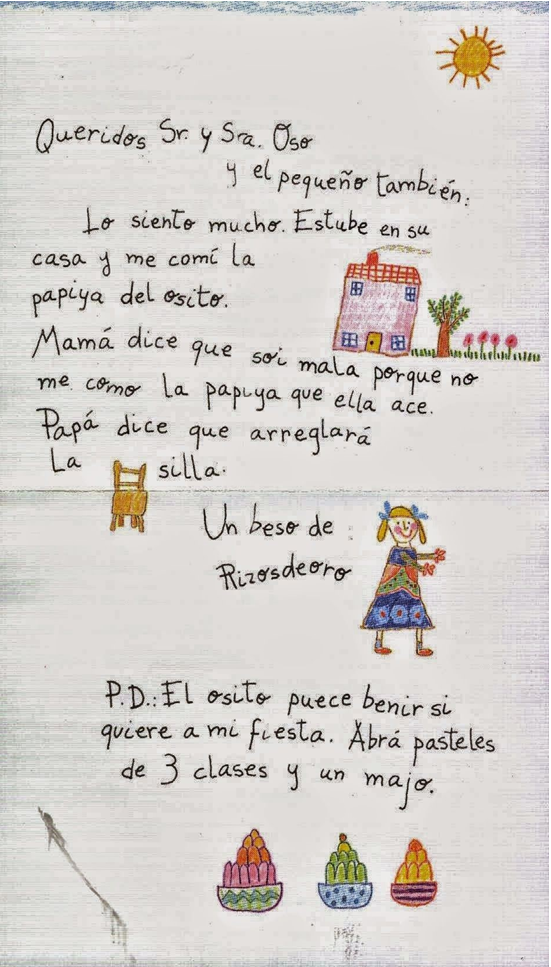 Queridos Sr. y Sra. Oso
y el pequeño también:
Lo siento mucho. Estube en su
casa y me comí la
papiya del osito.
Mamá dice que soi mala porque no
me como la papiya que ella ace.
Papá dice que arreglará
La silla.
Un beso de
Rizosdeoro
P.D.: El osito puece benir si
quiere a mi fiesta. Abrá pasteles
de 3 clases y un majo.